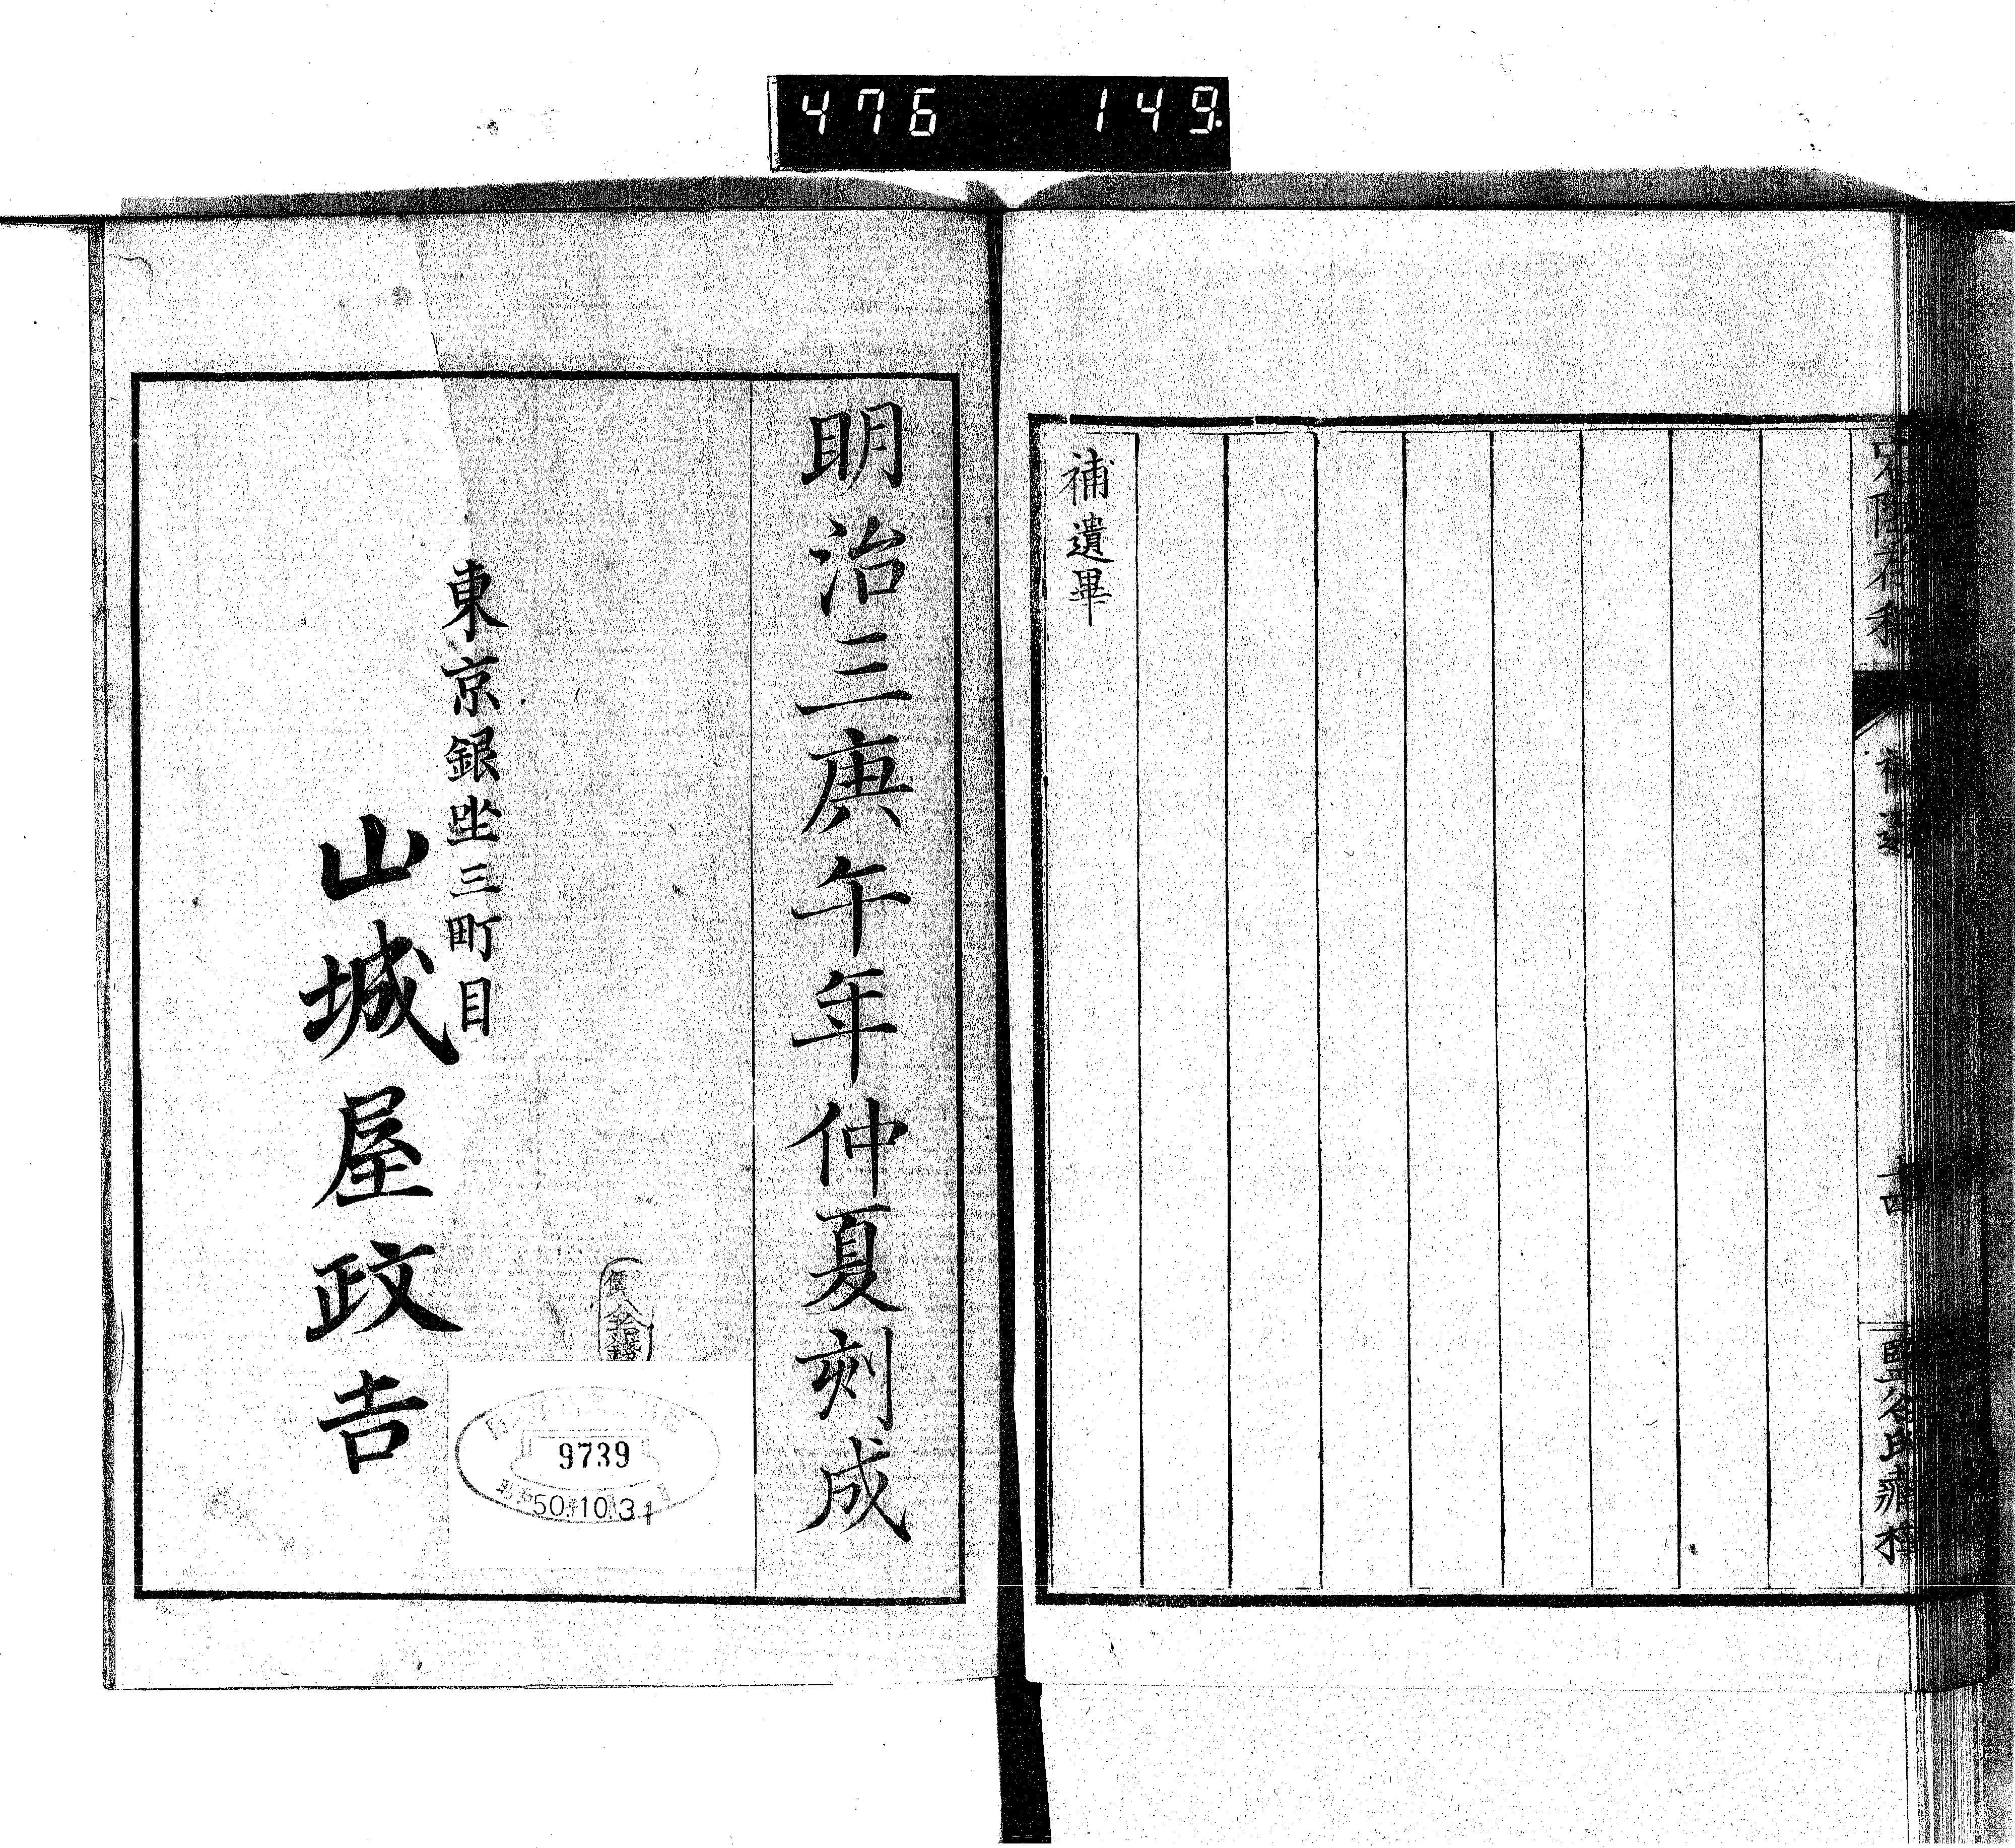 476 149
補遺畢
明治三庚午年仲夏刻成
東京銀坐三町目
山城屋政吉
9739
50.10.31